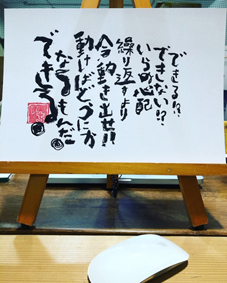 できる!?
できない!?
いらぬ心配
繰り返すより
今動き出せ!!
動けばどうにか
なるもんだ
できる